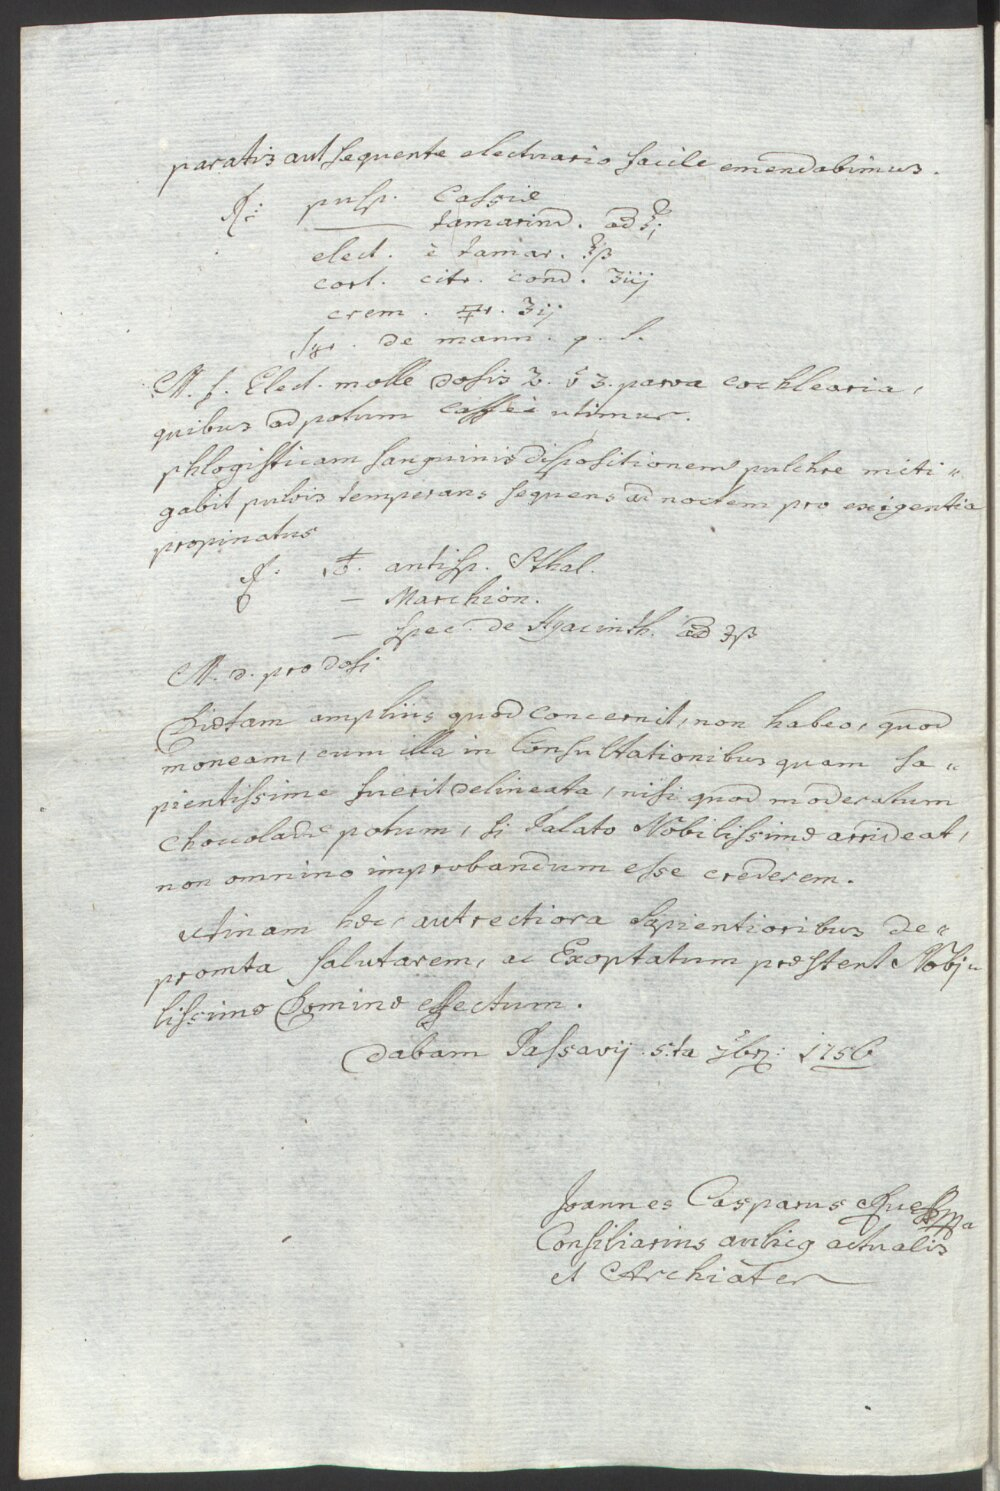 paratis aut sequente electuario facile emendabimus.
℞: pulp. Cassiæ
—— tamarind. aa ℥j
elect. è tamar. ℥ß
cort. citr. cond. ʒiij
crem. 🜿ri. ʒij
Syr. de mann. q. s.
M. f. Elect. molle dosis 2. v 3. parva cochlearia,
quibus ad potum Caffée utimur.
phlogisticam sanguinis dispositionem pulchre miti„
gabit pulvis temperans sequens ad noctem pro exigentia
propinatus
℞: antisp. Sthal.
— Marchion.
— Spec. de Hyacinth. aa ℈ß
M. d. pro dosi
Diætam ampliùs quod concernit, non habeo, quod
moneam, cum illa in Consultationibus quam sa„
pientissime fuerit delineata, nisi quod moderatum
chocoladæ potum, si Palato Nobilissimæ arrideat,
non omnino improbandum esse crederem.
utinam hæc, aut rectiora Sapientioribus de„
promta salutarem, ac Exoptatum præstent Nobi„
lissimæ Dominæ effectum.
dabam Passavij 5:ta 7br: 1756
Joannes Casparus
Consiliarius aulicq actualis
et Archiater